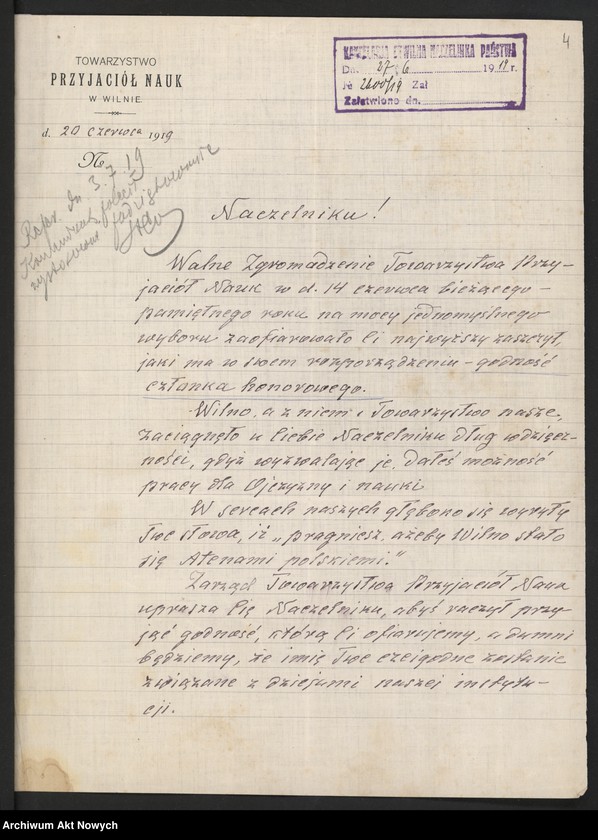 4
TOWARZYSTWO
PRZYJACIÓŁ NAUK
W WILNIE.
d. 20 czerwca 1919
No
KANCELARJA CYWILNA NACZELNIKA PAŃSTWA
Dn. 27/6 1919 r.
№ 2600/19 Zał
Załatwiono dn.
Rapor. dn 3.7.19
Komendant polecił
podziękowanie
Naczelniku!
Walne Zgromadzenie Towarzystwa Przy-
jaciół Nauk w d. 14 czerwca bieżącego -
pamiętnego roku na mocy jednomyślnego
wyboru zaofiarowało Ci najwyższy zaszczyt,
jaki ma w swem rozporządzeniu - godność
członka honorowego.
Wilno, a z niem i Towarzystwo nasze,
zaciągnęło u Ciebie Naczelniku dług wdzięcz-
ności, gdyż wyzwalając je, dałeś możność
pracy dla Ojczyzny i nauki.
W sercach naszych głęboko się wyryły
Twe słowa, iż "pragniesz, ażeby Wilno stało
się Atenami polskiemi."
Zarząd Towarzystwa Przyjaciół Nauk
uprasza Cię Naczelniku, abyś raczył przy-
jąć godność, którą Ci ofiarujemy, a dumni
będziemy, że imię Twe czcigodne zostanie
związane z dziejami naszej instytu-
cji.
Archiwum Akt Nowych